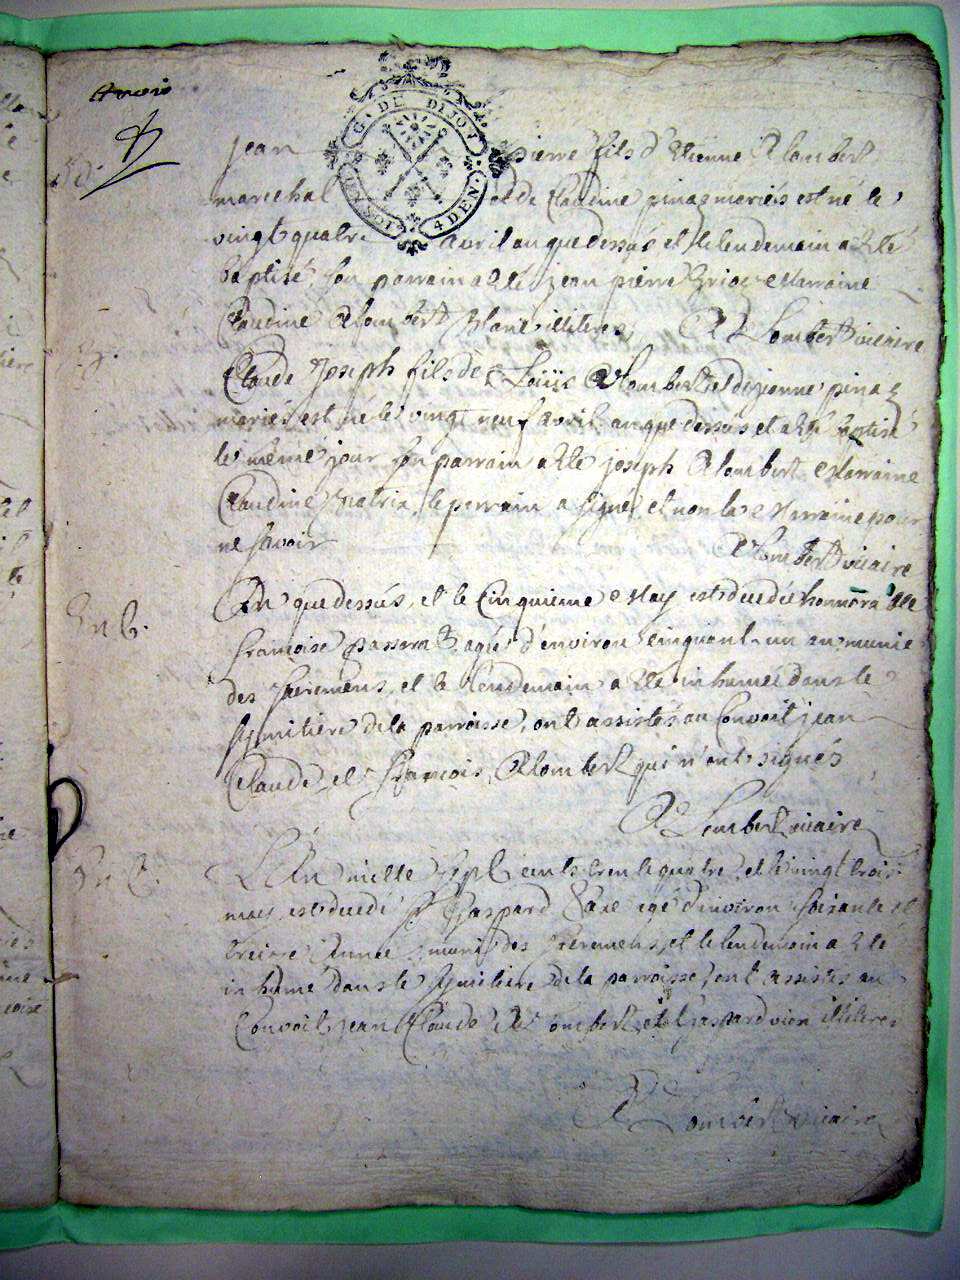 G. DE DIJON
4 DEN.
jean pierre fils d'Etienne Alombert
marechal et de Claudine pinaz mariés est né le
vingt quatre avril an que dessus, et le lendemain a eté
baptisé, son parrain a eté jean pierre Marraine
Claudine Alombert illiteres A Lombert vicaire
Claude Joseph fils de Loüis Alombert et d'ejenne pinaz
mariés est né le vingt neuf avril an que dessus et a eté batisé
le même jour son parrain a eté joseph Alombert Marraine
Claudine patria, le parrain a signé, et non la Marraine pour
ne savoir
Alombert vicaire
En b.
An que dessus, et le Cinquieme May est decedée honnorable
françoise passerat agée d'environ cinquant un an munie
des sacremens, et le lendemain a eté inhumée dans le
Symitiere de la parroisse, ont assistés au Convoit jean
Claude, et françois Alombert qui n'ont signés
A Lombert vicaire
En b.
L'An mille sept cents trente quatre, et le vingt trois
may est decedé Sr Gaspard agé d'environ soisante et
treize Années muni des sacremens, et le lendemain a eté
inhumé dans le Symitiere de la parroisse, ont assistés au
Convoit jean Claude Alombert, et Gaspard vion illiteres
A Lombert vicaire